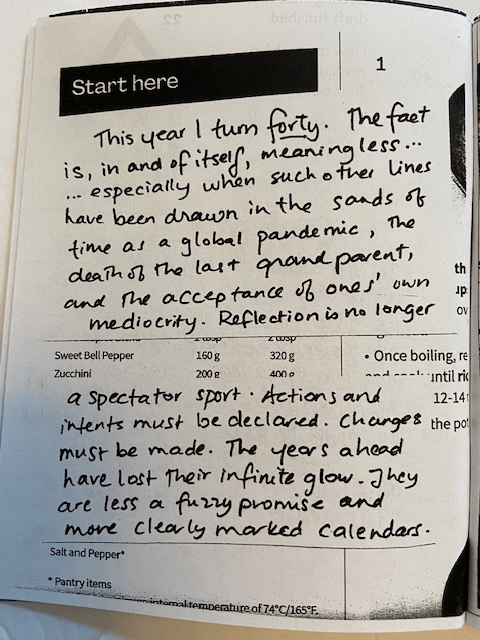 Start here
1
This year I turn forty. The fact
is, in and of itself, meaningless...
... especially when such other lines
have been drawn in the sands of
time as a global pandemic, the
death of the last grand parent,
and the acceptance of ones' own
mediocrity. Reflection is no longer
Sweet Bell Pepper 160 g 320 g
Zucchini 200 g 400 g
a spectator sport. Actions and
intents must be declared. Changes
must be made. The years ahead
have lost their infinite glow. They
are less a fuzzy promise and
more clearly marked calendars.
Salt and Pepper*
* Pantry items
internal temperature of 74°C/165°F.
th
up
ov
• Once boiling, re
until ric
12-14
the pot